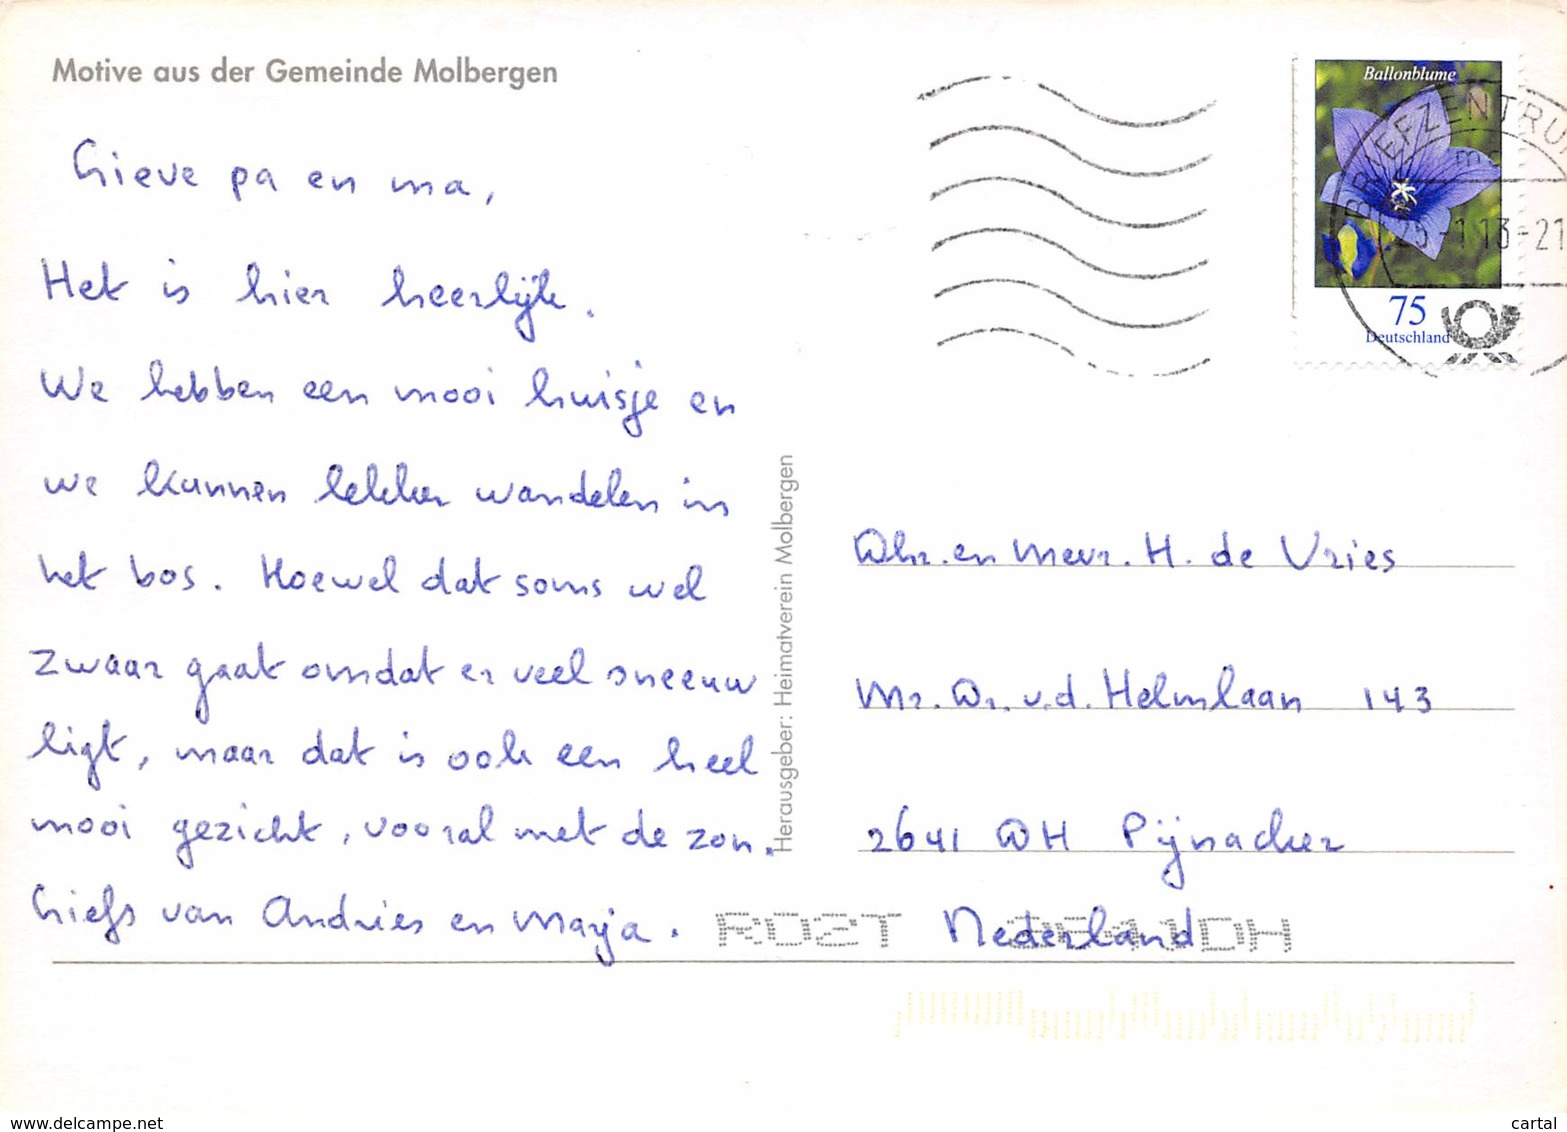 Motive aus der Gemeinde Molbergen
Lieve pa en ma,
Het is hier heerlijk.
We hebben een mooi huisje en
we kunnen lekker wandelen in
het bos. Hoewel dat soms wel
zwaar gaat omdat er veel sneeuw
ligt, maar dat is ook een heel
mooi gezicht, vooral met de zon.
Liefs van Andries en Marja.
Herausgeber: Heimatverein Molbergen
Ballonblume
75
Deutschland
BRIEFZENTRUM
-1.13-21
Dhr. en Mevr. H. de Vries
Mr. Dr. v.d. Helmlaan 143
2641 DH Pijnacker
Nederland
ROZT
DH
www.delcampe.net
cartal